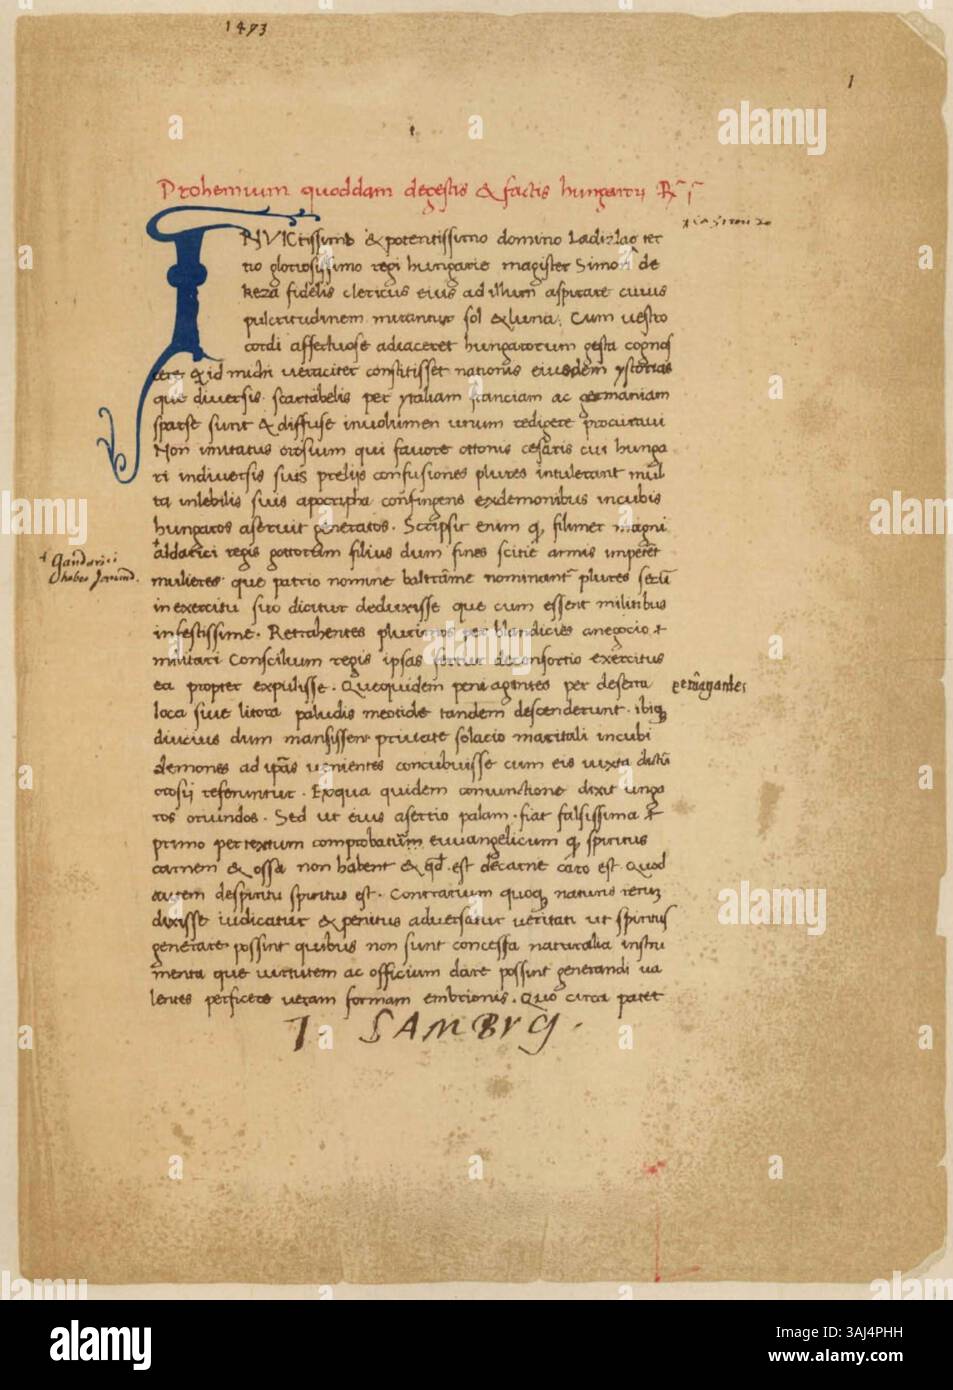 1473
1
Prohemium quoddam de gestis & factis hungarorum R
INVICtissimo & potentissimo domino Ladizlao ter
tio gloriosissimo regi hungarie magister Simon de
Keza fidelis clericus eius ad illum aspirare cuius
pulcritudinem mirantur sol & luna. Cum vestro
cordi affectuose adiaceret hungarorum gesta cognos
cere & id michi veraciter constitisset nationis eiusdem ystorias
que diversis scartabelis per ytaliam franciam ac germaniam
sparse sunt & diffuse in volumen unum redigere procuravi
Non imitatus orosium qui favore ottonis cesaris cui hunga
ri in diversis suis prelijs confusiones plures intulerant mul
ta in lebilis suis apocripha confingens ex demonibus incubis
hungaros aseruit generatos. Scripsit enim q, filimer magni
aldarici regis gottorum filius dum fines scitie armis imperet
Gandarici
mulieres que patrio nomine baltrame nominant plures secu
in exercitu suo dicitur deduxisse que cum essent militibus
infestissime. Retrahentes plurimos per blandicies a negocio
militari Consilium regis ipsas fertur de consortio exercitus
ea propter expulisse. Que quidem per agentes per deserta
peragrantes
loca sive litora paludis meotide tandem descenderunt. ibiq,
diucius dum mansissent private solacio maritali incubi
demones ad ipas venientes concubuisse cum eis iuxta dictu
orosij referuntur. Ex qua quidem coniunctione dixit unga
ros oriundos. Sed ut eius asertio palam fiat falsissima
primo per textum comprobatum euuangelicum q, spiritus
carnem & ossa non habent & qd est de carne caro est. Quod
autem de spiritu spiritus est. Contrarium quoq, naturis reru
dixisse iudicatur & penitus adversatur veritati ut spiritus
generare possint quibus non sunt concessa naturalia instru
menta que virtutem ac officium dare possint generandi va
lentes perficere veram formam embrionis. Quo circa patet
I. SAMBUCI.
a
alamy
alamy
Image ID: 2AJ4PHH
www.alamy.com